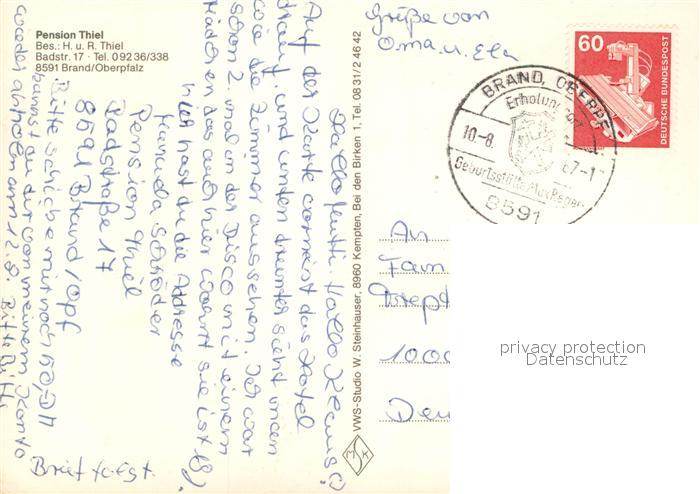 Pension Thiel
Bes.: H. u. R. Thiel
Badstr. 17 · Tel. 0 92 36/338
8591 Brand/Oberpfalz
Hallo Mutti. Hallo Klaus
Auf der Karte vorne ist das Hotel
drauf und unten drunter sieht man
wie die Zimmer aussehen. Ich war
schon 2. mal in der Disco mit einem
Mädchen das auch hier wohnt sie ist 18)
hier hast du die Addresse
Schröder
Pension Thiel
Badstraße 17
8591 Brand/Opf
Bitte schicke mir noch 50,-DM
kannst du dir von meinem Konto
wieder abholen am 12.8. Bitte Bitte
Brief folgt.
VWS-Studio W. Steinhauser, 8960 Kempten, Bei den Birken 1, Tel. 08 31/2 46 42
MSK
Grüße von
Oma u. Ela
60
DEUTSCHE BUNDESPOST
BRAND, OBERPF
Erholungsort
10.-8. 87-1
Geburtsstätte Max Reger
8591
An
Fam
1000
Deu
privacy protection
Datenschutz